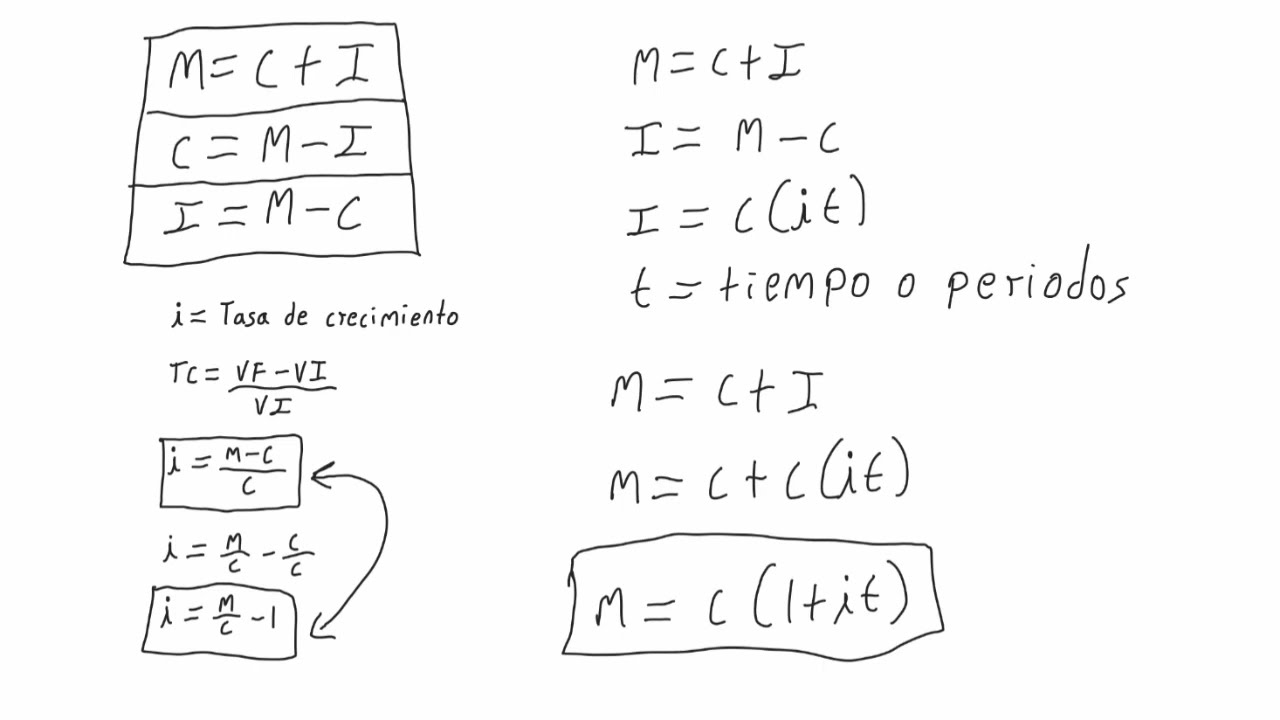 M = C + I
C = M - I
I = M - C
i = Tasa de crecimiento
TC = \frac{VF - VI}{VI}
i = \frac{M - C}{C}
i = \frac{M}{C} - \frac{C}{C}
i = \frac{M}{C} - 1
M = C + I
I = M - C
I = C(it)
t = tiempo o periodos
M = C + I
M = C + C(it)
M = C(1+it)